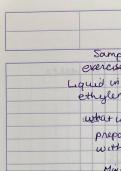 Samp
exercis
Liquid in
ethylen
what i
prepa
with
Mix